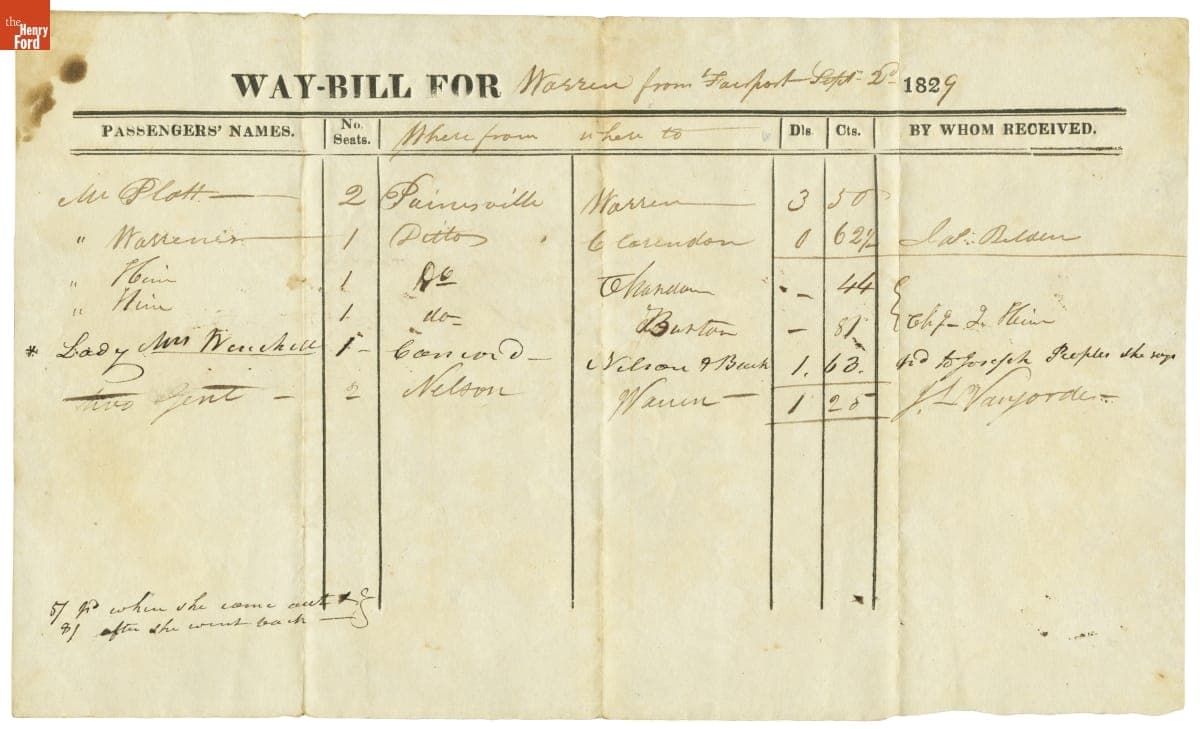 the Henry Ford
WAY-BILL FOR Warren from Fairport Sept 2d 1829
PASSENGERS' NAMES. No. Seats. Where from where to Dls Cts. BY WHOM RECEIVED.
Mr Platt 2 Painesville Warren 3 50
" Warrener 1 Ditto Clarendon 0 62½
" 1 do Chardon - 44
" 1 do Burton - 81
* Lady Mrs 1 - Concord - Nelson & Back 1. 63. pd to Joseph Peeples she says
two Gent - 2 Nelson Warren - 1 25
pd when she came out &
81 after she went back -